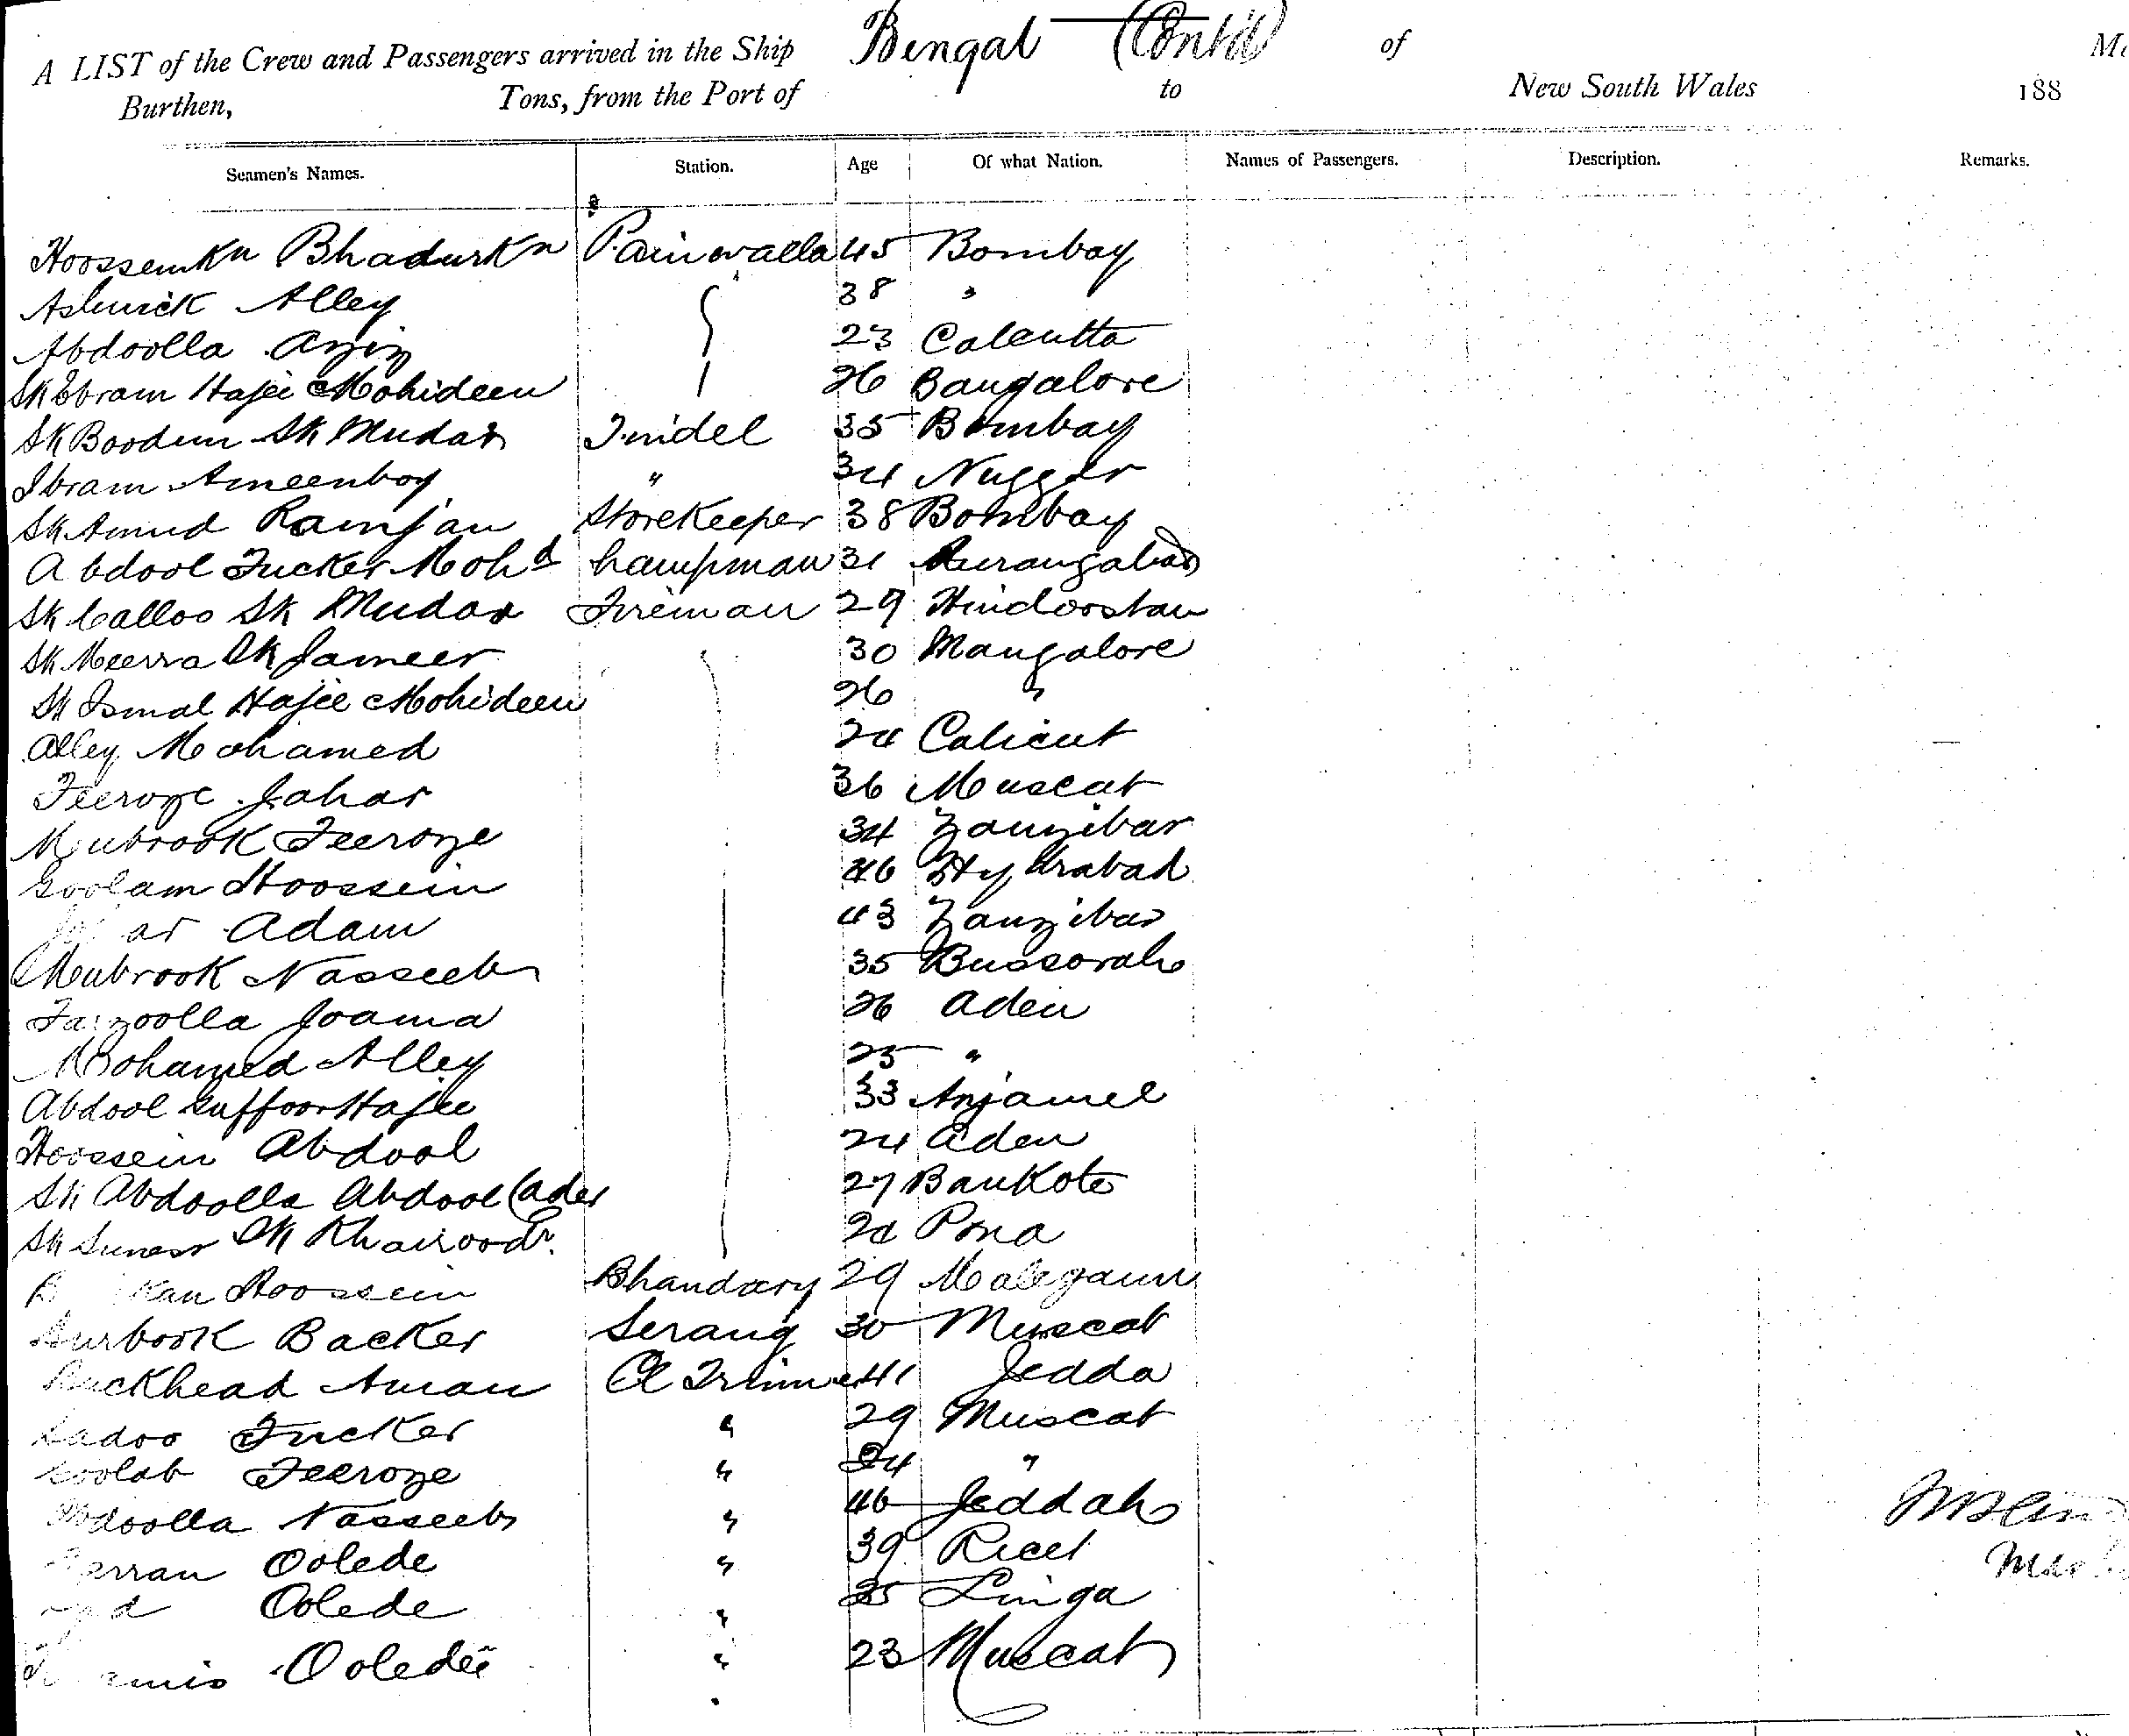 A LIST of the Crew and Passengers arrived in the Ship Bengal (Contd) of
Burthen, Tons, from the Port of to New South Wales 188
Seamen's Names. Station. Age Of what Nation. Names of Passengers. Description. Remarks.
Hoosseinkn Bhadurkn Paniwalla 45 Bombay
Alley 38 "
Abdoolla Aziz 23 Calcutta
Sk Ebram Hajee Mohideen 26 Bangalore
Sk Boodun Sk Mudar Tindel 35 Bombay
Ibram Ameenboy " 34 Nugger
Sk Amud Ramjan Storekeeper 38 Bombay
Abdool Tucker Mohd Lampman 31 Aurangabad
Sk Calloo Sk Mudar Fireman 29 Hindoostan
Sk Meerra Sk Jameer 30 Mangalore
Sk Ismal Hajee Mohideen 26 "
Alley Mohamed 24 Calicut
Feeroze Jahar 36 Muscat
Mubrook Feeroze 34 Zanzibar
Goolam Hoossein 46 Hydrabad
ar Adam 43 Zanzibar
Mubrook Nasseeb 35 Bussorah
Faizoolla Joama 26 Aden
Mohamed Alley 25 "
Abdool Guffoor Hajee 33 Anjamel
Hoossein Abdool 24 Aden
Sk Abdoolla Abdool Cader 27 Bankote
Sk Sk Khairoodn. Poona
Kan Hoossein Bhandary 29 Malegaun
Backer Serang 30 Muscat
Aman Cl Trimmer 41 Jedda
Sadoo Tucker " 29 Muscat
Goolab Feeroze " 24 "
Abdoolla Nasseeb " 46 Jeddah
Oolede " 39
Oolede " 35 Linga
Ooledee " 23 Muscat